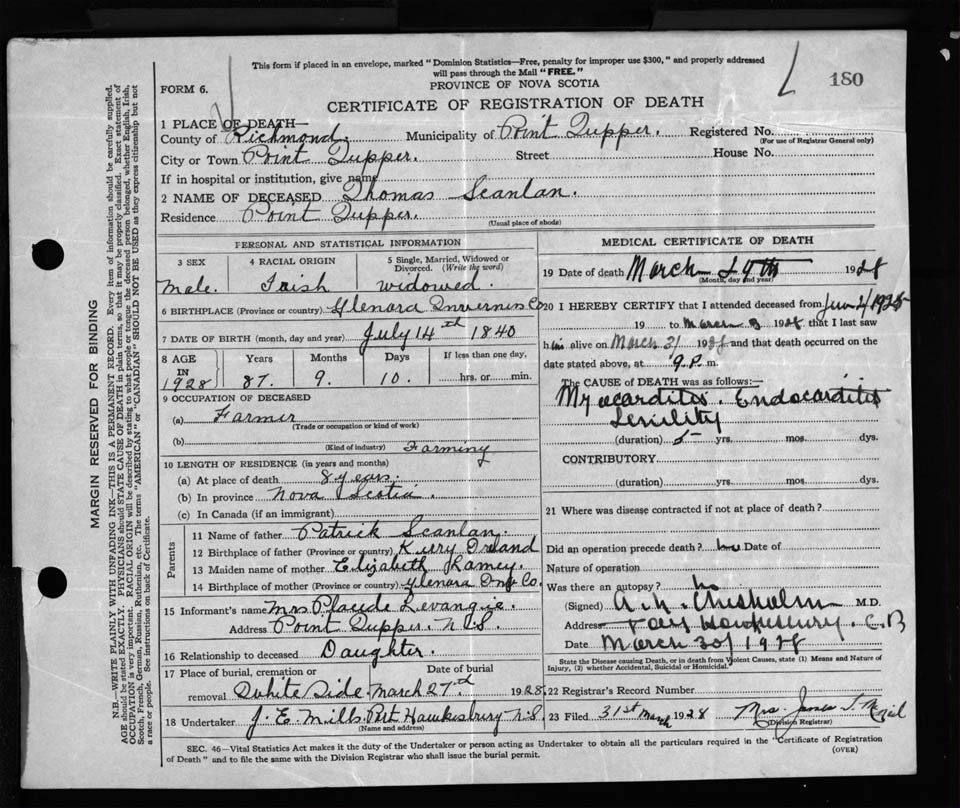 This form if placed in an envelope, marked "Dominion Statistics—Free, penalty for improper use $300," and properly addressed
will pass through the Mail "FREE."
180
FORM 6.
PROVINCE OF NOVA SCOTIA
CERTIFICATE OF REGISTRATION OF DEATH
MARGIN RESERVED FOR BINDING
N.B.—WRITE PLAINLY WITH UNFADING INK—THIS IS A PERMANENT RECORD. Every item of information should be carefully supplied.
AGE should be stated EXACTLY. PHYSICIANS should STATE CAUSE OF DEATH in plain terms, so that it may be properly classified. Exact statement of
OCCUPATION is very important. RACIAL ORIGIN will be described by stating to what people or tongue the deceased person belonged, whether English, Irish,
Scotch, French, German, Russian, Ruthenian, etc. The terms "AMERICAN" or "CANADIAN" SHOULD NOT BE USED as they express citizenship but not
a race or people. See instructions on back of Certificate.
1 PLACE OF DEATH—
County of Richmond. Municipality of Point Tupper. Registered No.
(For use of Registrar General only)
City or Town Point Tupper. Street House No.
If in hospital or institution, give name
2 NAME OF DECEASED Thomas Scanlan.
Residence Point Tupper.
(Usual place of abode)
PERSONAL AND STATISTICAL INFORMATION
3 SEX 4 RACIAL ORIGIN 5 Single, Married, Widowed or Divorced. (Write the word)
Male. Irish widowed.
6 BIRTHPLACE (Province or country) Glenora Inverness Co
7 DATE OF BIRTH (month, day and year) July 14th 1840
8 AGE Years Months Days If less than one day,
IN 1928 87. 9. 10. hrs. or min.
9 OCCUPATION OF DECEASED
(a) Farmer
(Trade or occupation or kind of work)
(b) Farming
(Kind of industry)
10 LENGTH OF RESIDENCE (in years and months)
(a) At place of death 8 years.
(b) In province Nova Scotia.
(c) In Canada (if an immigrant)
Parents
11 Name of father Patrick Scanlan.
12 Birthplace of father (Province or country) Kerry Ireland
13 Maiden name of mother Elizabeth
14 Birthplace of mother (Province or country) Glenora Inv Co.
15 Informant's name Mrs Plaude Levangie.
Address Point Tupper. N.S.
16 Relationship to deceased Daughter.
17 Place of burial, cremation or Date of burial
removal White Side March 27th 1928
18 Undertaker J. E. Mills Port Hawkesbury N.S.
(Name and address)
MEDICAL CERTIFICATE OF DEATH
19 Date of death March 1928
(Month, day and year)
20 I HEREBY CERTIFY that I attended deceased from
19 to March 1928 that I last saw
him alive on March 1928 and that death occurred on the
date stated above, at 9 P. m.
The CAUSE OF DEATH was as follows:—
Myocarditis. Endocarditis
Senility
(duration) yrs. mos. dys.
CONTRIBUTORY
(duration) yrs. mos. dys.
21 Where was disease contracted if not at place of death?
Did an operation precede death? no Date of
Nature of operation
Was there an autopsy? no
(Signed) Chisholm M.D.
Address Port Hawkesbury. C.B
Date March 30/1928
State the Disease causing Death, or in death from Violent Causes, state (1) Means and Nature of
Injury, (2) whether Accidental, Suicidal or Homicidal.
22 Registrar's Record Number
23 Filed 31st March 1928 Mrs. James
(Division Registrar)
SEC. 46—Vital Statistics Act makes it the duty of the Undertaker or person acting as Undertaker to obtain all the particulars required in the "Certificate of Registration
of Death" and to file the same with the Division Registrar who shall issue the burial permit.
(OVER)